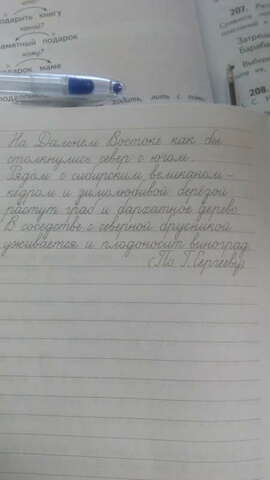 подарить книгу
какой?
памятный подарок
кому?
подарок маме
207.
208.
На Дальнем Востоке как бы
столкнулись север с югом.
Рядом с сибирским великаном –
кедром и зимолюбивой берёзой
растут граб и бархатное дерево.
В соседстве с северной брусникой
уживается и плодоносит виноград.
(По Г. Сергееву)